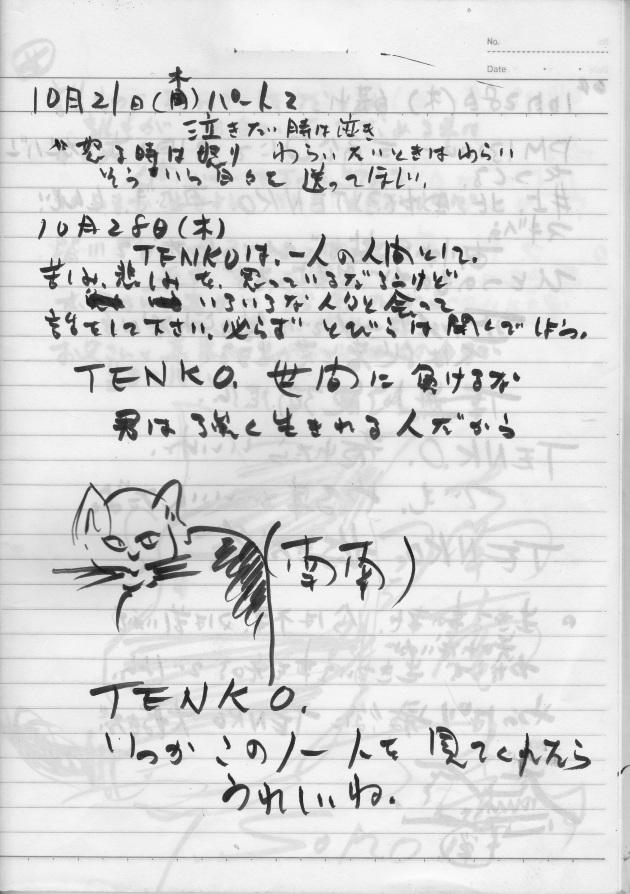 No.
Date
10月21日(木)パート2
泣きたい時は泣き
怒る時は怒り わらいたいときはわらい
そういう日々を送ってほしい。
10月28日(木)
TENKOは、一人の人間として、
苦しみ、悲しみを、思っているだろうけど
いろいろな人々と会って
話をして下さい。必らず とびらは開くでしょう。
TENKO. 世間に負けるな
君は強く生きれる人だから
(南南)
TENKO.
いつかこのノートを見てくれたら
うれしいね.